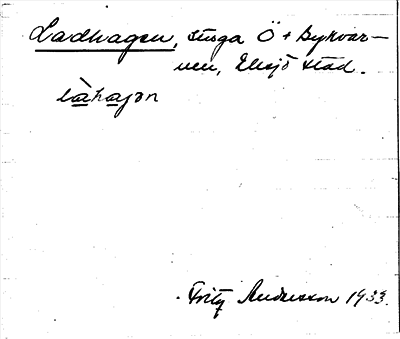 Ladhagen, stuga Ö + Bykvar-
nen, Eksjö stad.
làhajən
Fritz Andersson 1933.